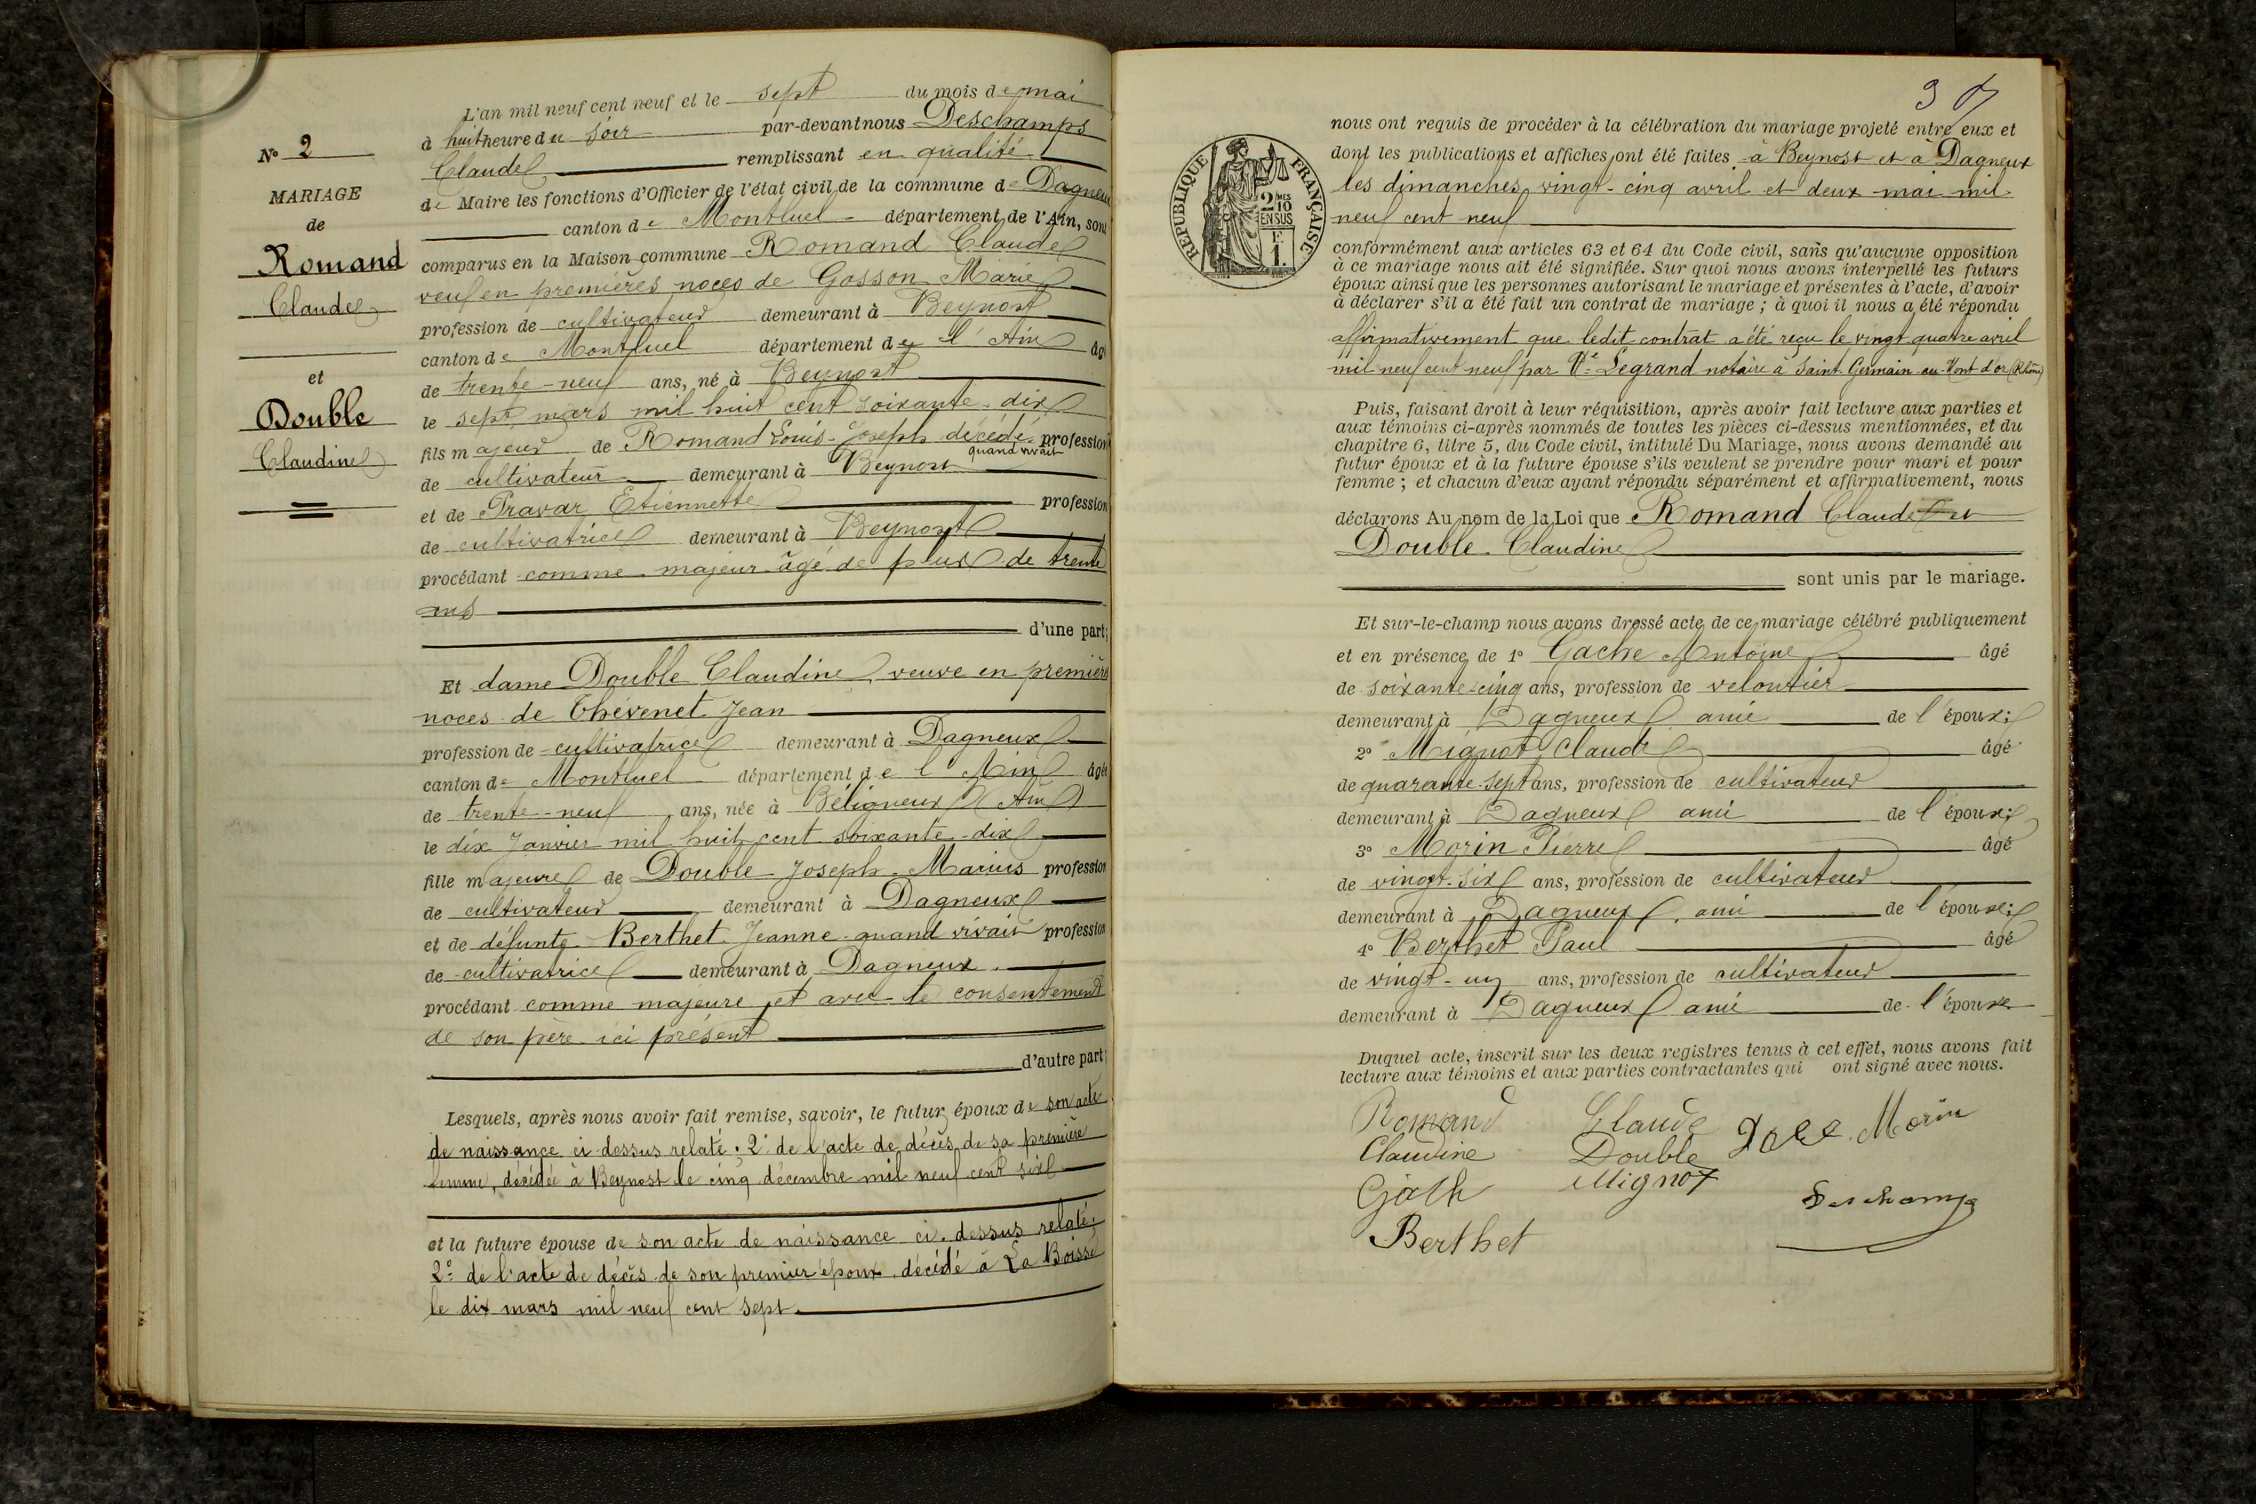 N° 2
MARIAGE
de
Romand
Claude
et
Double
Claudine
L'an mil neuf cent neuf et le sept du mois de mai
à huit heure du soir par-devant nous Deschamps
Claude remplissant en qualité
de Maire les fonctions d'Officier de l'état civil de la commune de Dagneux
canton de Montluel département de l'Ain, sont
comparus en la Maison commune Romand Claude
veuf en premières noces de Gosson Marie
profession de cultivateur demeurant à Beynost
canton de Montluel département de l'Ain âgé
de trente-neuf ans, né à Beynost
le sept mars mil huit cent soixante-dix
fils majeur de Romand Louis-Joseph décédé profession
quand vivait
de cultivateur demeurant à Beynost
et de Pravar Etiennette profession
de cultivatrice demeurant à Beynost
procédant comme majeur âgé de plus de trente
ans
d'une part;
Et dame Double Claudine, veuve en premières
noces de Thevenet Jean
profession de cultivatrice demeurant à Dagneux
canton de Montluel département de l'Ain âgée
de trente-neuf ans, née à Béligneux (Ain)
le dix Janvier mil huit cent soixante-dix
fille majeure de Double Joseph-Marius profession
de cultivateur demeurant à Dagneux
et de défunte Berthet Jeanne quand vivait profession
de cultivatrice demeurant à Dagneux
procédant comme majeure et avec le consentement
de son père ici présent
d'autre part
Lesquels, après nous avoir fait remise, savoir, le futur époux de son acte
de naissance ci dessus relaté. 2° de l'acte de décès de sa première
femme, décédée à Beynost le cinq décembre mil neuf cent six
et la future épouse de son acte de naissance ci-dessus relaté;
2° de l'acte de décès de son premier époux décédé à La Boisse
le dix mars mil neuf cent sept.
RÉPUBLIQUE FRANÇAISE
2/10
EN SUS
1 F.
nous ont requis de procéder à la célébration du mariage projeté entre eux et
dont les publications et affiches ont été faites à Beynost et à Dagneux
les dimanches vingt-cinq avril et deux mai mil
neuf cent neuf
conformément aux articles 63 et 64 du Code civil, sans qu'aucune opposition
à ce mariage nous ait été signifiée. Sur quoi nous avons interpellé les futurs
époux ainsi que les personnes autorisant le mariage et présentes à l'acte, d'avoir
à déclarer s'il a été fait un contrat de mariage ; à quoi il nous a été répondu
affirmativement que ledit contrat a été reçu le vingt quatre avril
mil neuf cent neuf par Legrand notaire à Saint-Germain-au-Mont d'or (Rhône)
Puis, faisant droit à leur réquisition, après avoir fait lecture aux parties et
aux témoins ci-après nommés de toutes les pièces ci-dessus mentionnées, et du
chapitre 6, titre 5, du Code civil, intitulé Du Mariage, nous avons demandé au
futur époux et à la future épouse s'ils veulent se prendre pour mari et pour
femme ; et chacun d'eux ayant répondu séparément et affirmativement, nous
déclarons Au nom de la Loi que Romand Claude et
Double Claudine
sont unis par le mariage.
Et sur-le-champ nous avons dressé acte de ce mariage célébré publiquement
et en présence de 1° Gache Antoine âgé
de soixante-cinq ans, profession de veloutier
demeurant à Dagneux ami de l'époux;
2° Mignot Claude âgé
de quarante-sept ans, profession de cultivateur
demeurant à Dagneux ami de l'époux;
3° Morin Pierre âgé
de vingt-six ans, profession de cultivateur
demeurant à Dagneux, ami de l'épouse;
4° Berthet Paul âgé
de vingt-un ans, profession de cultivateur
demeurant à Dagneux ami de l'épouse
Duquel acte, inscrit sur les deux registres tenus à cet effet, nous avons fait
lecture aux témoins et aux parties contractantes qui ont signé avec nous.
Romand Claude Morin
Claudine Double
Gach Mignot Deschamps
Berthet